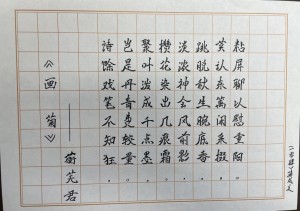 《画菊》
——蘅芜君
诗馀戏笔不知狂，
岂是丹青费较量。
聚叶泼成千点墨，
攒花染出几痕霜。
淡浓神会风前影，
跳脱秋生腕底香。
莫认东篱闲采掇，
粘屏聊以慰重阳。